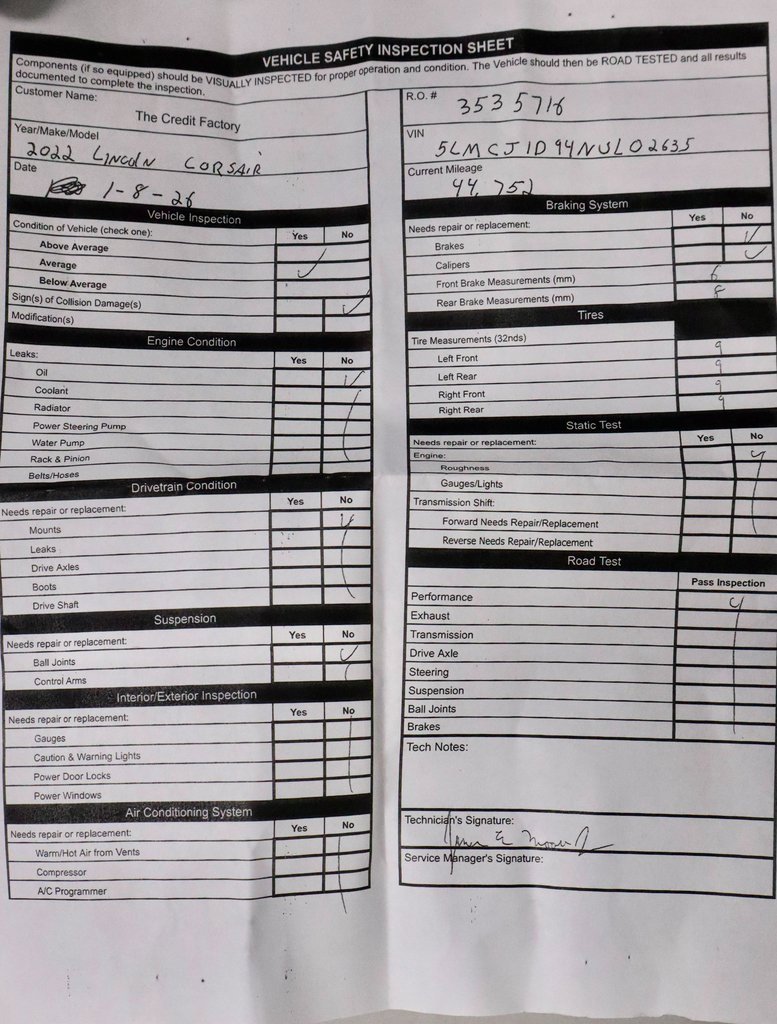 VEHICLE SAFETY INSPECTION SHEET
Components (if so equipped) should be VISUALLY INSPECTED for proper operation and condition. The Vehicle should then be ROAD TESTED and all results
documented to complete the inspection.
Customer Name:
The Credit Factory
Year/Make/Model
2022 LINCOLN CORSAIR
Date
1-8-26
Vehicle Inspection
Condition of Vehicle (check one):
Yes No
Above Average
Average
Below Average
Sign(s) of Collision Damage(s)
Modification(s)
Engine Condition
Leaks:
Yes No
Oil
Coolant
Radiator
Power Steering Pump
Water Pump
Rack & Pinion
Belts/Hoses
Drivetrain Condition
Needs repair or replacement:
Yes No
Mounts
Leaks
Drive Axles
Boots
Drive Shaft
Suspension
Needs repair or replacement:
Yes No
Ball Joints
Control Arms
Interior/Exterior Inspection
Needs repair or replacement:
Yes No
Gauges
Caution & Warning Lights
Power Door Locks
Power Windows
Air Conditioning System
Needs repair or replacement:
Yes No
Warm/Hot Air from Vents
Compressor
A/C Programmer
R.O. #
3535716
VIN
5LMCJ1D94NUL02635
Current Mileage
44,752
Braking System
Needs repair or replacement:
Yes No
Brakes
Calipers
Front Brake Measurements (mm) 6
Rear Brake Measurements (mm) 8
Tires
Tire Measurements (32nds)
Left Front 9
Left Rear 9
Right Front 9
Right Rear 9
Static Test
Needs repair or replacement:
Yes No
Engine:
Roughness
Gauges/Lights
Transmission Shift:
Forward Needs Repair/Replacement
Reverse Needs Repair/Replacement
Road Test
Pass Inspection
Performance
Exhaust
Transmission
Drive Axle
Steering
Suspension
Ball Joints
Brakes
Tech Notes:
Technician's Signature:
Service Manager's Signature: